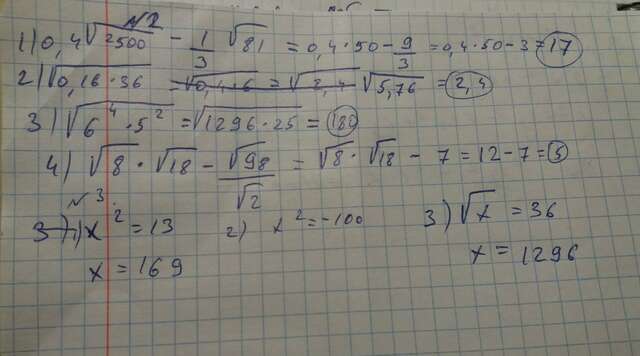 №2
1) 0,4√2500 - 1/3 √81 = 0,4·50 - 9/3 = 0,4·50 - 3 = 17
2) √0,16·36 = √0,4·6 = √2,4 √5,76 = 2,4
3) √6⁴·5² = √1296·25 = 180
4) √8 · √18 - √98/√2 = √8 · √18 - 7 = 12 - 7 = 5
№3.
3) 1) x² = 13 2) x² = -100 3) √x = 36
x = 169 x = 1296